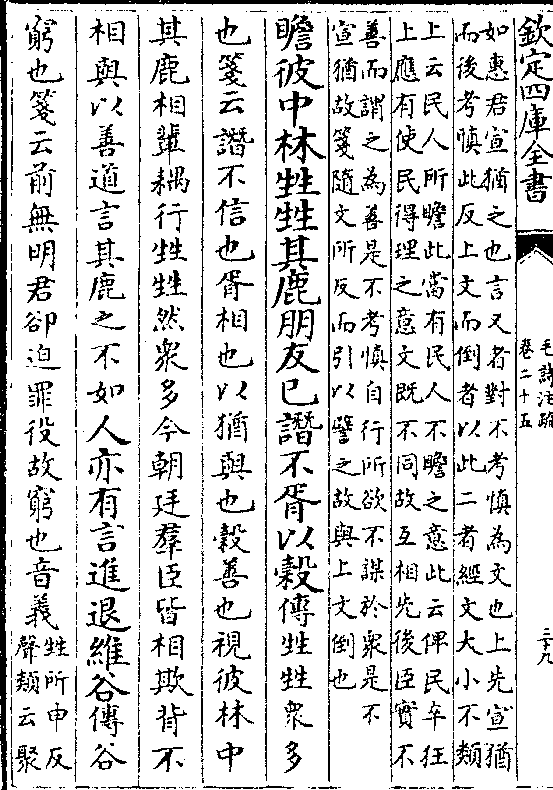 欽定四庫全書
毛詩注疏
卷二十五
二十九
如惠君宣猶之也言又者對不考慎為文也上先宣猶
而後考慎此反上文而倒者以此二者經文大小不類
上云民人所瞻此當有民人不瞻之意此云俾民卒狂
上應有使民得理之意文既不同故互相先後臣實不
善而謂之為善是不考慎自行所欲不謀於衆是不
宣猶故箋隨文所反而引以譬之故與上文倒也
瞻彼中林甡甡其鹿朋友已譖不胥以穀傳甡甡衆多
也箋云譖不信也胥相也以猶與也穀善也視彼林中
其鹿相輩耦行甡甡然衆多今朝廷羣臣皆相欺背不
相與以善道言其鹿之不如人亦有言進退維谷傳谷
窮也箋云前無明君卻迫罪役故窮也音義
甡所申反
聲類云聚